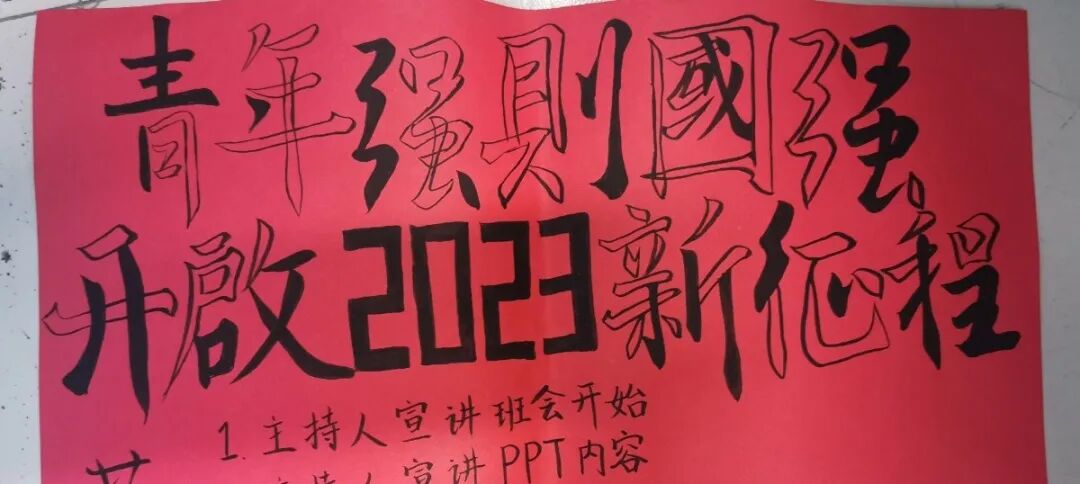 青年强則國强
开啟2023新征程
1.主持人宣讲班会开始
持人宣讲PPT内容